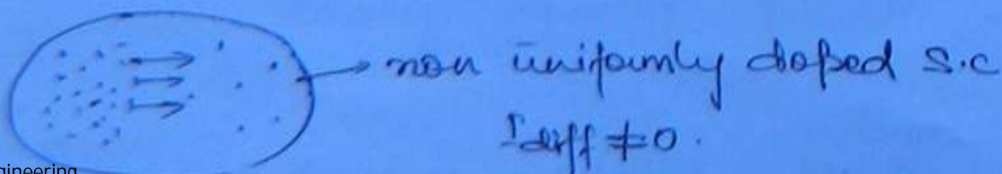 non uniformly doped s.c
Idiff ≠ 0.
gineering